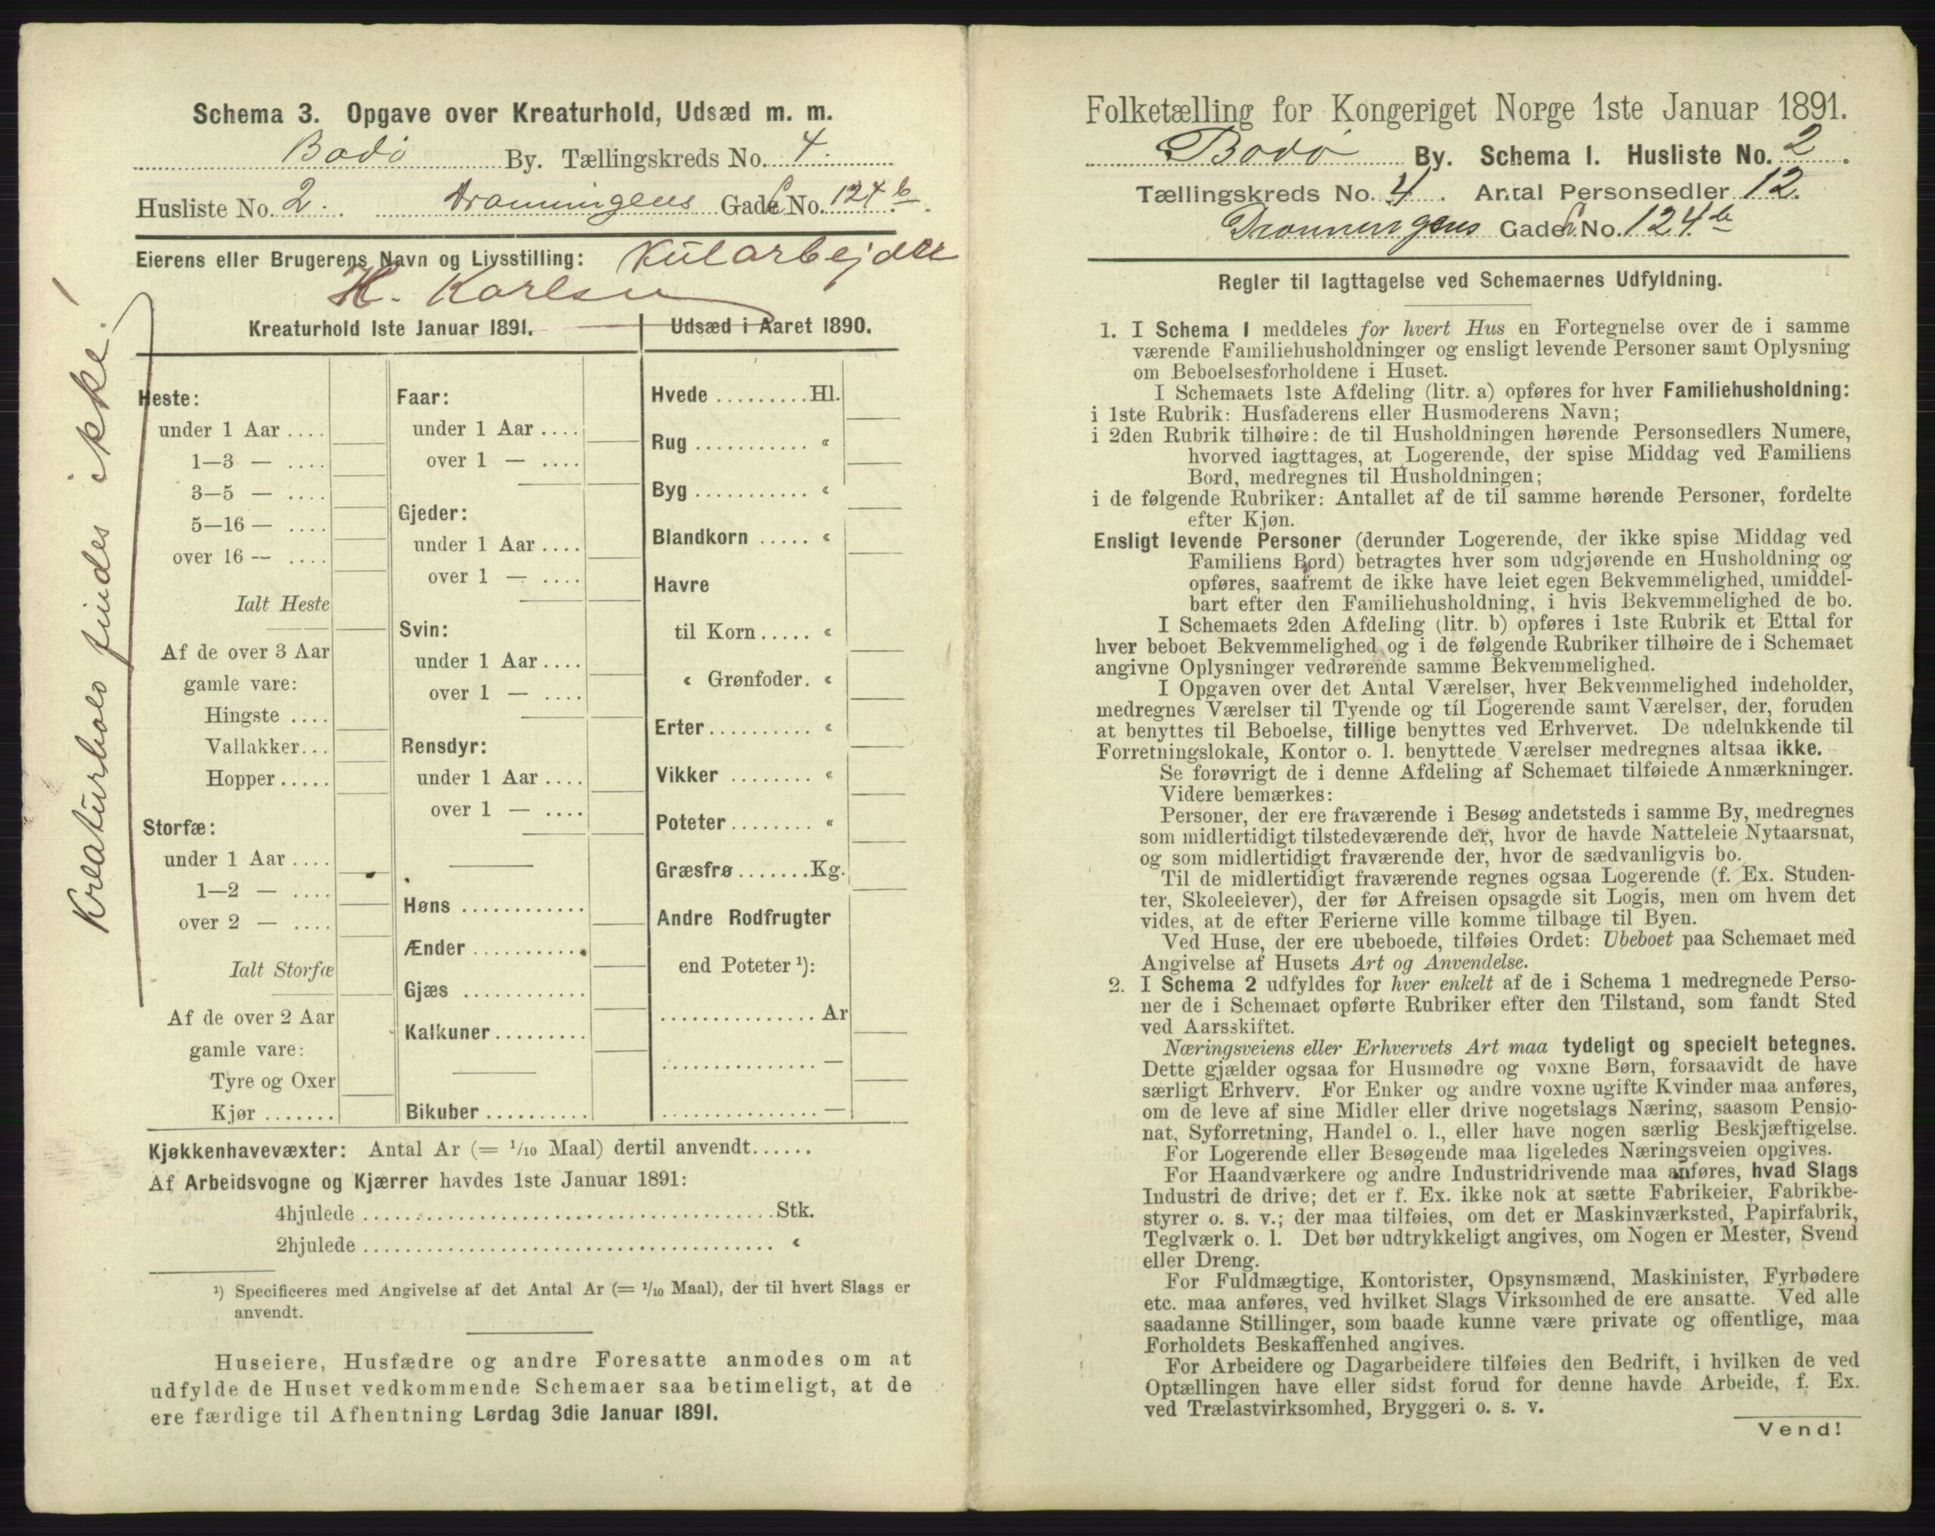 Schema 3. Opgave over Kreaturhold, Udsæd m. m.
Bodö By. Tællingskreds No. 4.
Husliste No. 2. Dronningens Gade No. 124 b.
Eierens eller Brugerens Navn og Livsstilling: Kularbejder
H. Karlsen
Kreaturhold findes ikke!
Kreaturhold 1ste Januar 1891.
Heste:
under 1 Aar ....
1—3 — ....
3—5 — ....
5—16 — ....
over 16 — ....
Ialt Heste
Af de over 3 Aar
gamle vare:
Hingste ....
Vallakker...
Hopper.....
Storfæ:
under 1 Aar ....
1—2 — ....
over 2 — ....
Ialt Storfæ
Af de over 2 Aar
gamle vare:
Tyre og Oxer
Kjør .......
Faar:
under 1 Aar ....
over 1 — ....
Gjeder:
under 1 Aar ....
over 1 — ....
Svin:
under 1 Aar ....
over 1 — ....
Rensdyr:
under 1 Aar ....
over 1 — ....
Høns ............
Ænder ..........
Gjæs ............
Kalkuner.........
Bikuber ..........
Udsæd i Aaret 1890.
Hvede .........Hl.
Rug ........... «
Byg ........... «
Blandkorn ..... «
Havre
til Korn..... «
« Grønfoder. «
Erter .......... «
Vikker ........ «
Poteter........ «
Græsfrø .......Kg.
Andre Rodfrugter
end Poteter ¹):
............... Ar
............... —
............... —
Kjøkkenhavevæxter: Antal Ar (= 1/10 Maal) dertil anvendt......
Af Arbeidsvogne og Kjærrer havdes 1ste Januar 1891:
4hjulede ........................................Stk.
2hjulede ........................................ «
¹) Specificeres med Angivelse af det Antal Ar (= 1/10 Maal), der til hvert Slags er
anvendt.
Huseiere, Husfædre og andre Foresatte anmodes om at
udfylde de Huset vedkommende Schemaer saa betimeligt, at de
ere færdige til Afhentning Lørdag 3die Januar 1891.
Folketælling for Kongeriget Norge 1ste Januar 1891.
Bodö By. Schema 1. Husliste No. 2.
Tællingskreds No. 4. Antal Personsedler 12.
Dronningens Gade No. 124 b
Regler til Iagttagelse ved Schemaernes Udfyldning.
1. I Schema 1 meddeles for hvert Hus en Fortegnelse over de i samme
værende Familiehusholdninger og ensligt levende Personer samt Oplysning
om Beboelsesforholdene i Huset.
I Schemaets 1ste Afdeling (litr. a) opføres for hver Familiehusholdning:
i 1ste Rubrik: Husfaderens eller Husmoderens Navn;
i 2den Rubrik tilhøire: de til Husholdningen hørende Personsedlers Numere,
hvorved iagttages, at Logerende, der spise Middag ved Familiens
Bord, medregnes til Husholdningen;
i de følgende Rubriker: Antallet af de til samme hørende Personer, fordelte
efter Kjøn.
Ensligt levende Personer (derunder Logerende, der ikke spise Middag ved
Familiens Bord) betragtes hver som udgjørende en Husholdning og
opføres, saafremt de ikke have leiet egen Bekvemmelighed, umiddel-
bart efter den Familiehusholdning, i hvis Bekvemmelighed de bo.
I Schemaets 2den Afdeling (litr. b) opføres i 1ste Rubrik et Ettal for
hver beboet Bekvemmelighed og i de følgende Rubriker tilhøire de i Schemaet
angivne Oplysninger vedrørende samme Bekvemmelighed.
I Opgaven over det Antal Værelser, hver Bekvemmelighed indeholder,
medregnes Værelser til Tyende og til Logerende samt Værelser, der, foruden
at benyttes til Beboelse, tillige benyttes ved Erhvervet. De udelukkende til
Forretningslokale, Kontor o. l. benyttede Værelser medregnes altsaa ikke.
Se forøvrigt de i denne Afdeling af Schemaet tilføiede Anmærkninger.
Videre bemærkes:
Personer, der ere fraværende i Besøg andetsteds i samme By, medregnes
som midlertidigt tilstedeværende der, hvor de havde Natteleie Nytaarsnat,
og som midlertidigt fraværende der, hvor de sædvanligvis bo.
Til de midlertidigt fraværende regnes ogsaa Logerende (f. Ex. Studen-
ter, Skoleelever), der før Afreisen opsagde sit Logis, men om hvem det
vides, at de efter Ferierne ville komme tilbage til Byen.
Ved Huse, der ere ubeboede, tilføies Ordet: Ubeboet paa Schemaet med
Angivelse af Husets Art og Anvendelse.
2. I Schema 2 udfyldes for hver enkelt af de i Schema 1 medregnede Perso-
ner de i Schemaet opførte Rubriker efter den Tilstand, som fandt Sted
ved Aarsskiftet.
Næringsveiens eller Erhvervets Art maa tydeligt og specielt betegnes.
Dette gjælder ogsaa for Husmødre og voxne Børn, forsaavidt de have
særligt Erhverv. For Enker og andre voxne ugifte Kvinder maa anføres,
om de leve af sine Midler eller drive nogetslags Næring, saasom Pensio-
nat, Syforretning, Handel o. l., eller have nogen særlig Beskjæftigelse.
For Logerende eller Besøgende maa ligeledes Næringsveien opgives.
For Haandværkere og andre Industridrivende maa anføres, hvad Slags
Industri de drive; det er f. Ex. ikke nok at sætte Fabrikeier, Fabrikbe-
styrer o. s. v.; der maa tilføies, om det er Maskinværksted, Papirfabrik,
Teglværk o. l. Det bør udtrykkeligt angives, om Nogen er Mester, Svend
eller Dreng.
For Fuldmægtige, Kontorister, Opsynsmænd, Maskinister, Fyrbødere
etc. maa anføres, ved hvilket Slags Virksomhed de ere ansatte. Ved alle
saadanne Stillinger, som baade kunne være private og offentlige, maa
Forholdets Beskaffenhed angives.
For Arbeidere og Dagarbeidere tilføies den Bedrift, i hvilken de ved
Optællingen have eller sidst forud for denne havde Arbeide, f. Ex.
ved Trælastvirksomhed, Bryggeri o. s. v.
Vend!